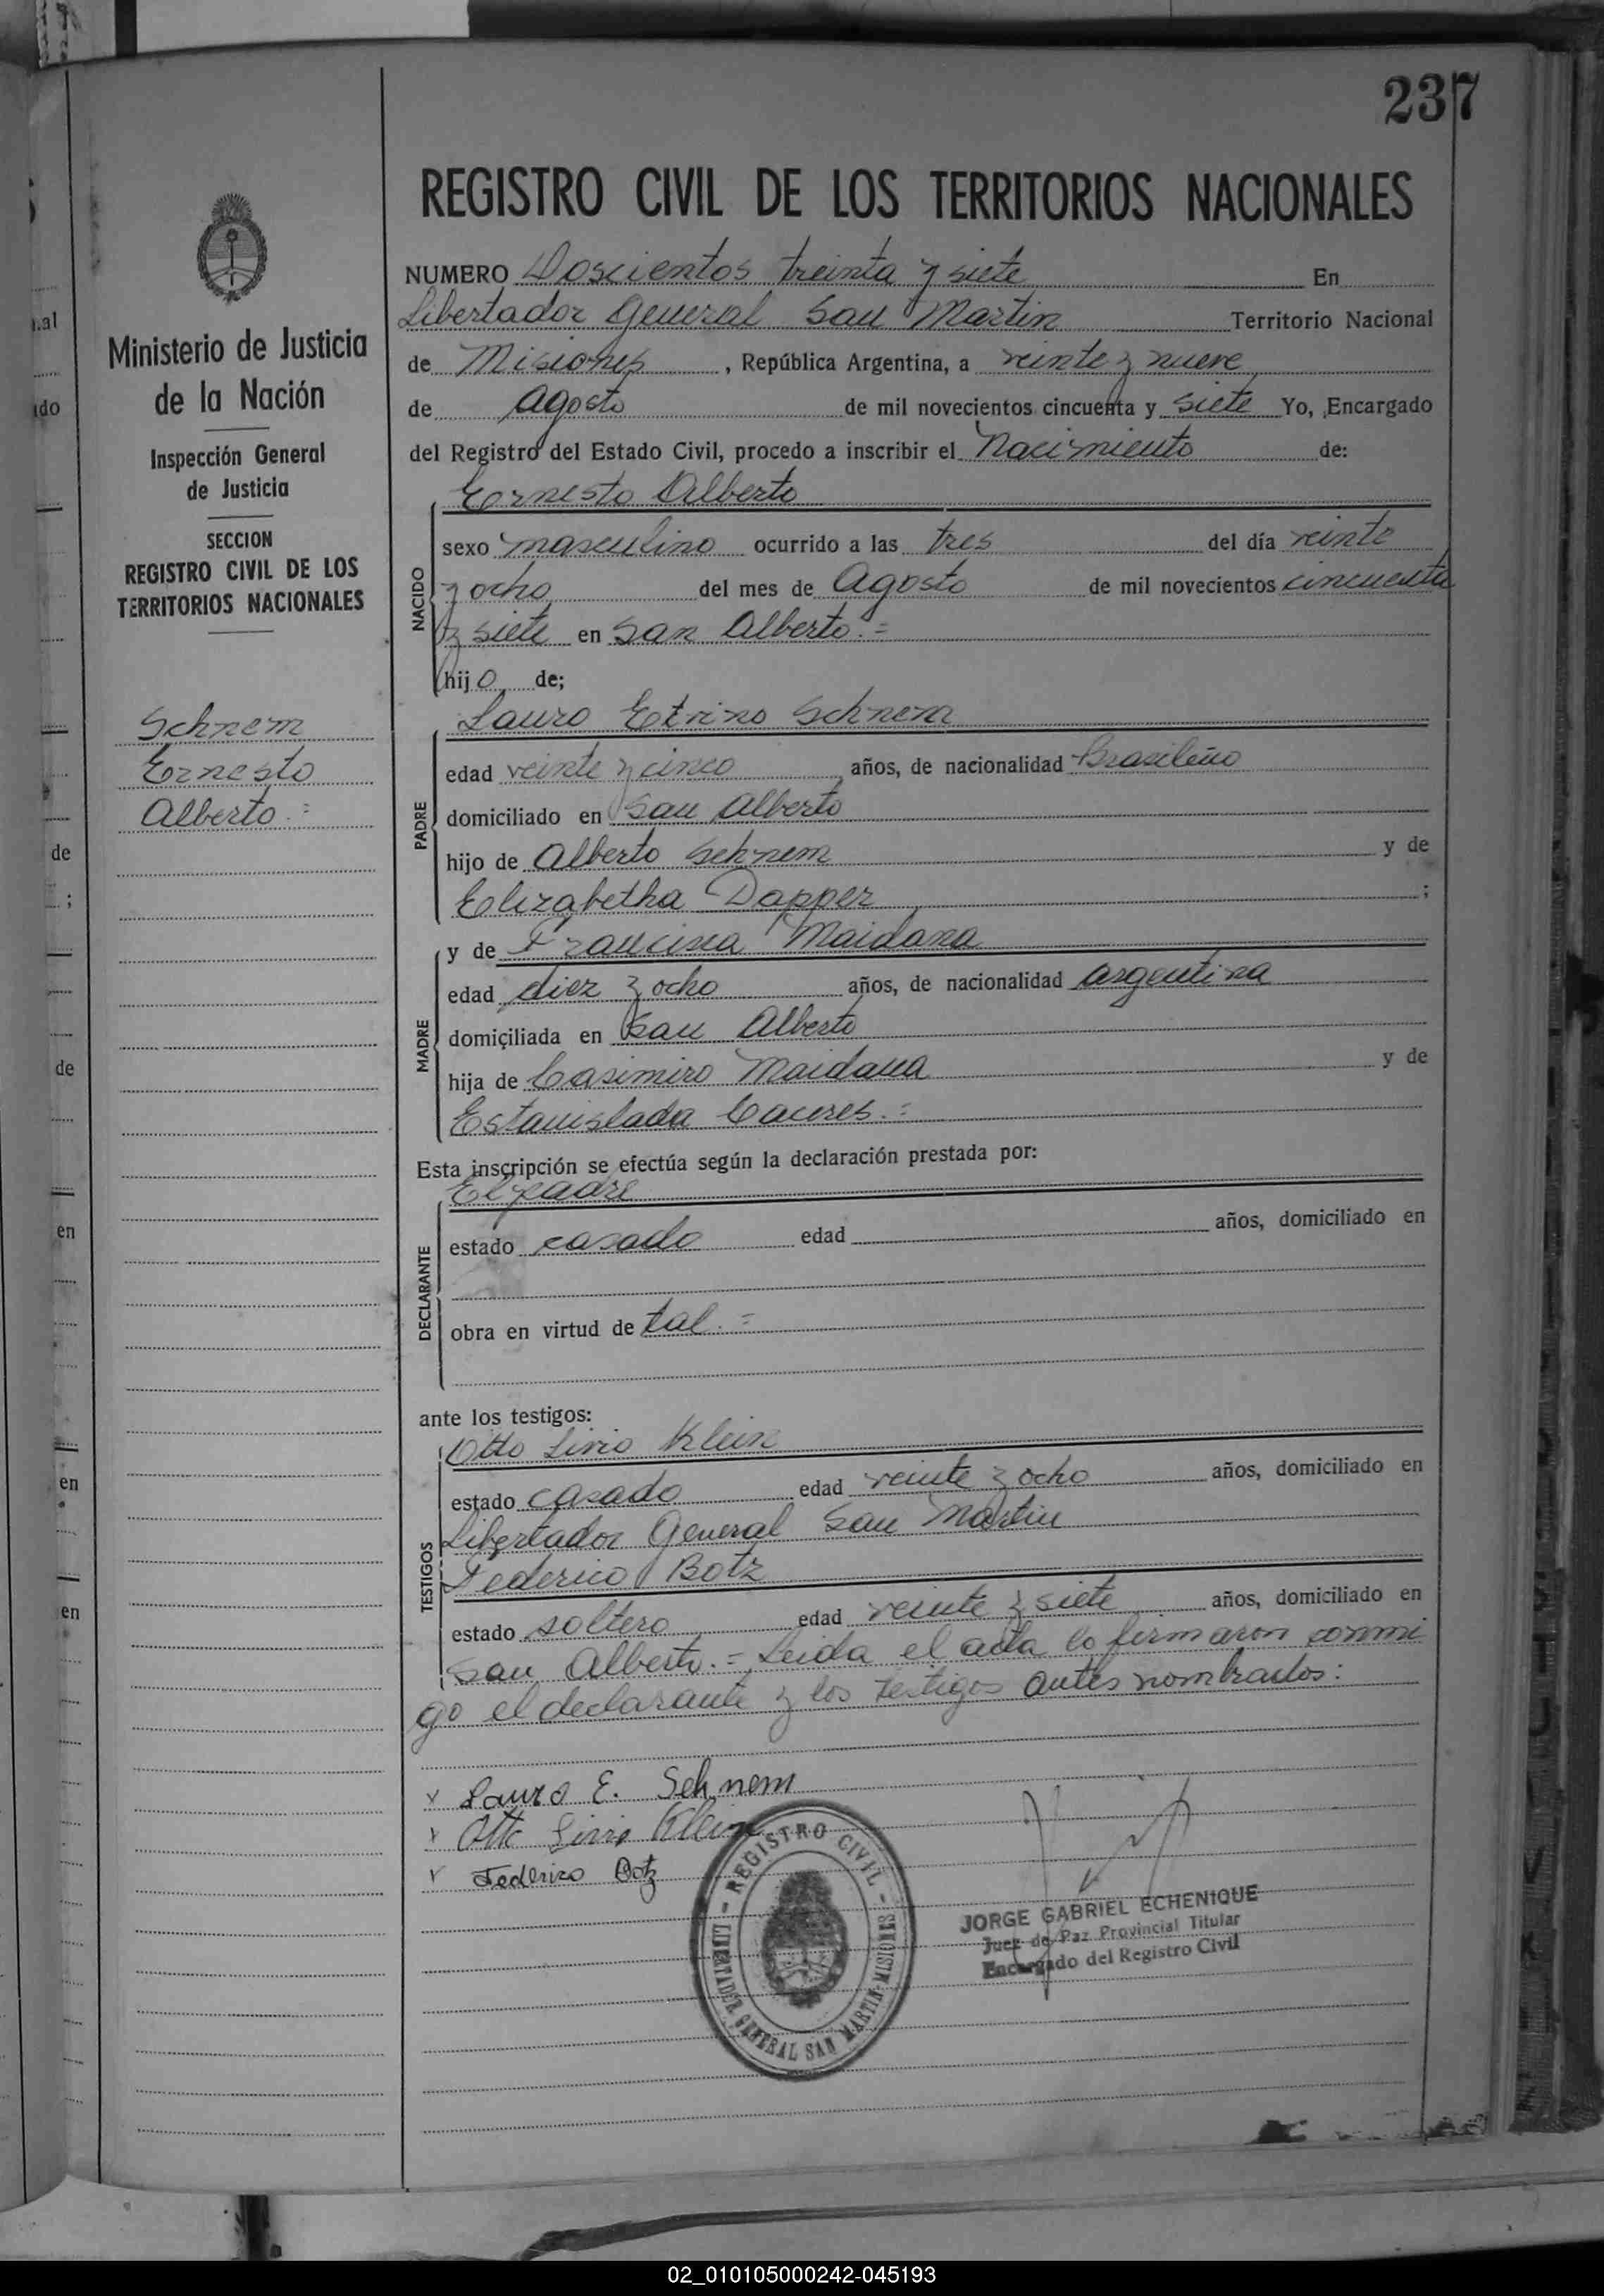 237
REGISTRO CIVIL DE LOS TERRITORIOS NACIONALES
Ministerio de Justicia
de la Nación
Inspección General
de Justicia
SECCION
REGISTRO CIVIL DE LOS
TERRITORIOS NACIONALES
Schnem
Ernesto
Alberto.=
NUMERO Doscientos treinta y siete En
Libertador General San Martin Territorio Nacional
de Misiones, República Argentina, a veinte y nueve
de Agosto de mil novecientos cincuenta y siete Yo, Encargado
del Registro del Estado Civil, procedo a inscribir el Nacimiento de:
Ernesto Alberto
NACIDO
sexo masculino ocurrido a las tres del día veinte
y ocho del mes de Agosto de mil novecientos cincuenta
y siete en San Alberto.=
hijo de;
PADRE
Lauro Etvino Schnem
edad veinte y cinco años, de nacionalidad Brasileño
domiciliado en San Alberto
hijo de Alberto Schnem y de
Elizabetha Dapper ;
MADRE
y de Francisca Maidana
edad diez y ocho años, de nacionalidad argentina
domiciliada en San Alberto
hija de Casimiro Maidana y de
Estanislada Caceres.=
Esta inscripción se efectúa según la declaración prestada por:
DECLARANTE
El padre
estado casado edad años, domiciliado en
obra en virtud de tal.=
ante los testigos:
TESTIGOS
Otto Livio Klein
estado casado edad veinte y ocho años, domiciliado en
Libertador General San Martin
Federico Botz
estado soltero edad veinte y siete años, domiciliado en
San Alberto.= Leida el acta lo firmaron conmi
go el declarante y los testigos antes nombrados:
x Lauro E. Schnem
x Otto Livio Klein
x Federico Botz
REGISTRO CIVIL
LIBERTADOR GENERAL SAN MARTIN-MISIONES
JORGE GABRIEL ECHENIQUE
Juez de Paz Provincial Titular
Encargado del Registro Civil
02_010105000242-045193